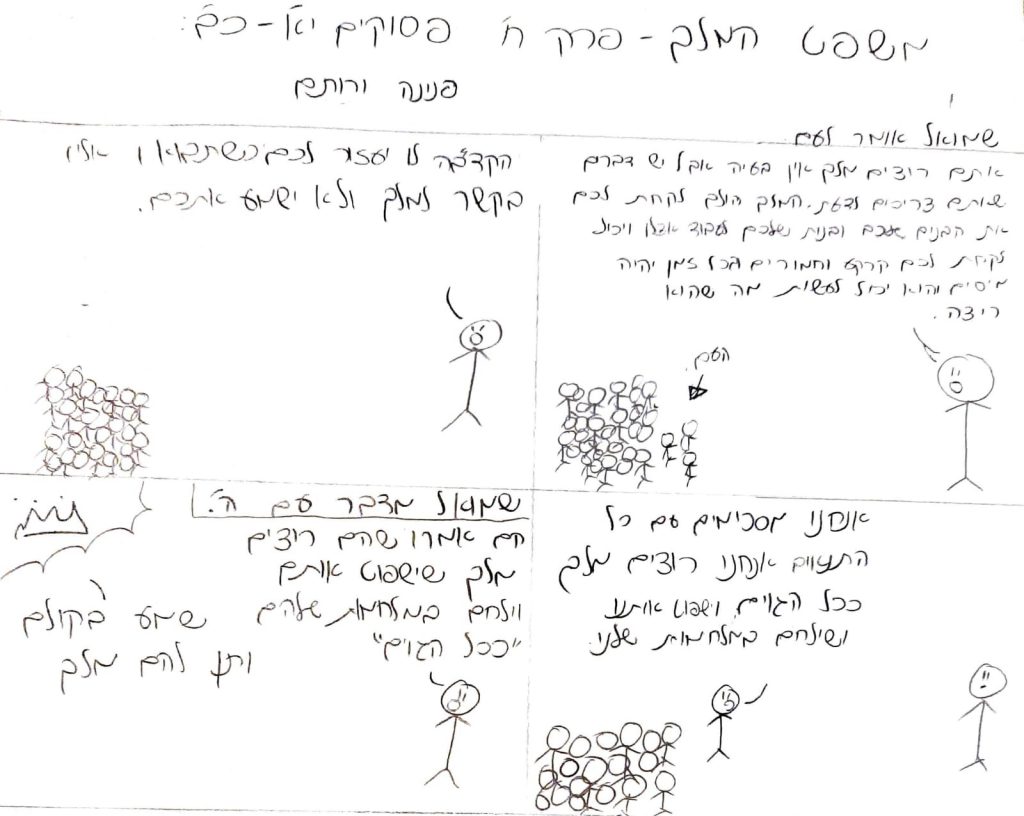 משפט המלך - פרק ח' פסוקים יא' - כב':
פנינה ורותם
שמואל אומר לעם
אתם רוצים מלך אין בעיה אבל יש דברים
שאתם צריכים לדעת. המלך הולך לקחת לכם
את הבנים שלכם ובנות שלכם לעבוד אצלו ויכול
לקחת לכם קרקע וחמורים ובכל זמן יהיה
מיסים והוא יכול לעשות מה שהוא
רוצה.
העם
הקדב"ה לו יעזור לכם כשתבואו אליו
בקשר למלך ולא ישמע אתכם.
אנחנו מסכימים עם כל
התנאים אנחנו רוצים מלך
ככל הגוים וישפוט אותנו
ושילחם במלחמות שלנו.
שמואל מדבר עם ה'.
הם אמרו שהם רוצים
מלך שישפוט אותם
וילחם במלחמות שלהם
"ככל הגוים"
שמע בקולם
ותן להם מלך